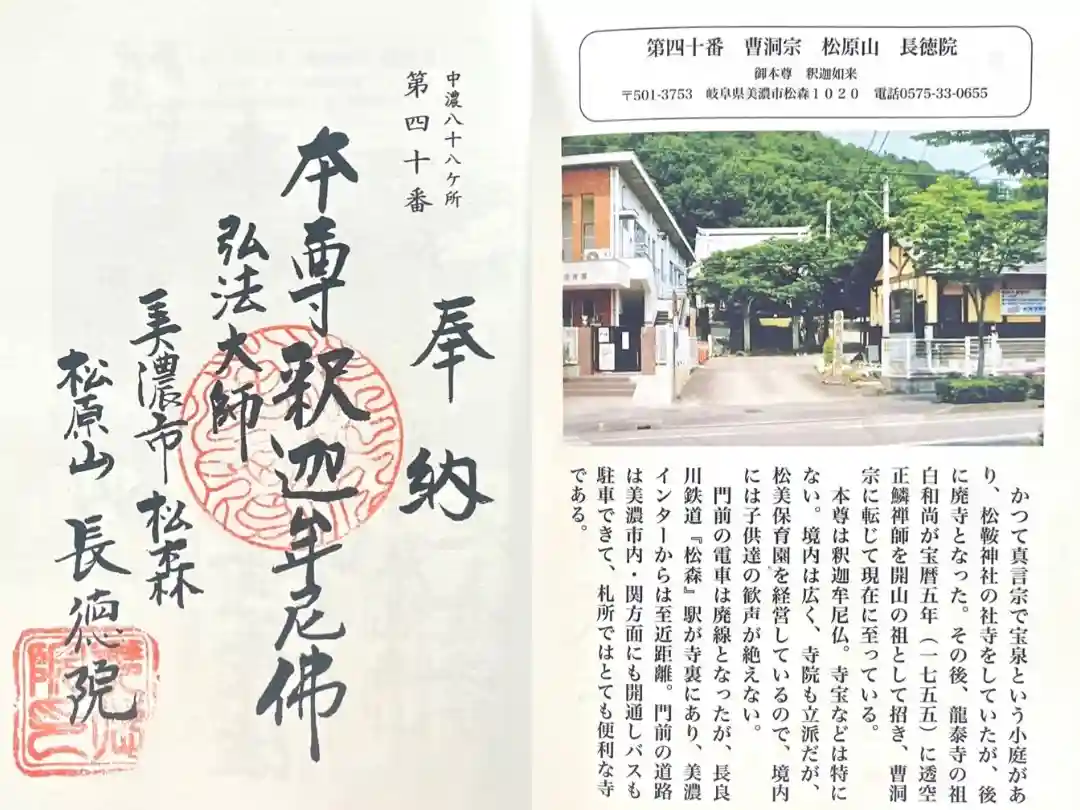 中濃八十八ケ所
第四十番
奉納
本尊釈迦牟尼佛
弘法大師
美濃市 松森
松原山 長徳院
第四十番 曹洞宗 松原山 長徳院
御本尊 釈迦如来
〒501-3753 岐阜県美濃市松森1020 電話0575-33-0655
かつて真言宗で宝泉という小庭があ
り、松鞍神社の社寺をしていたが、後
に廃寺となった。その後、龍泰寺の祖
白和尚が宝暦五年（一七五五）に透空
正鱗禅師を開山の祖として招き、曹洞
宗に転じて現在に至っている。
本尊は釈迦牟尼仏。寺宝などは特に
ない。境内は広く、寺院も立派だが、
松美保育園を経営しているので、境内
には子供達の歓声が絶えない。
門前の電車は廃線となったが、長良
川鉄道『松森』駅が寺裏にあり、美濃
インターからは至近距離。門前の道路
は美濃市内・関方面にも開通しバスも
駐車できて、札所ではとても便利な寺
である。